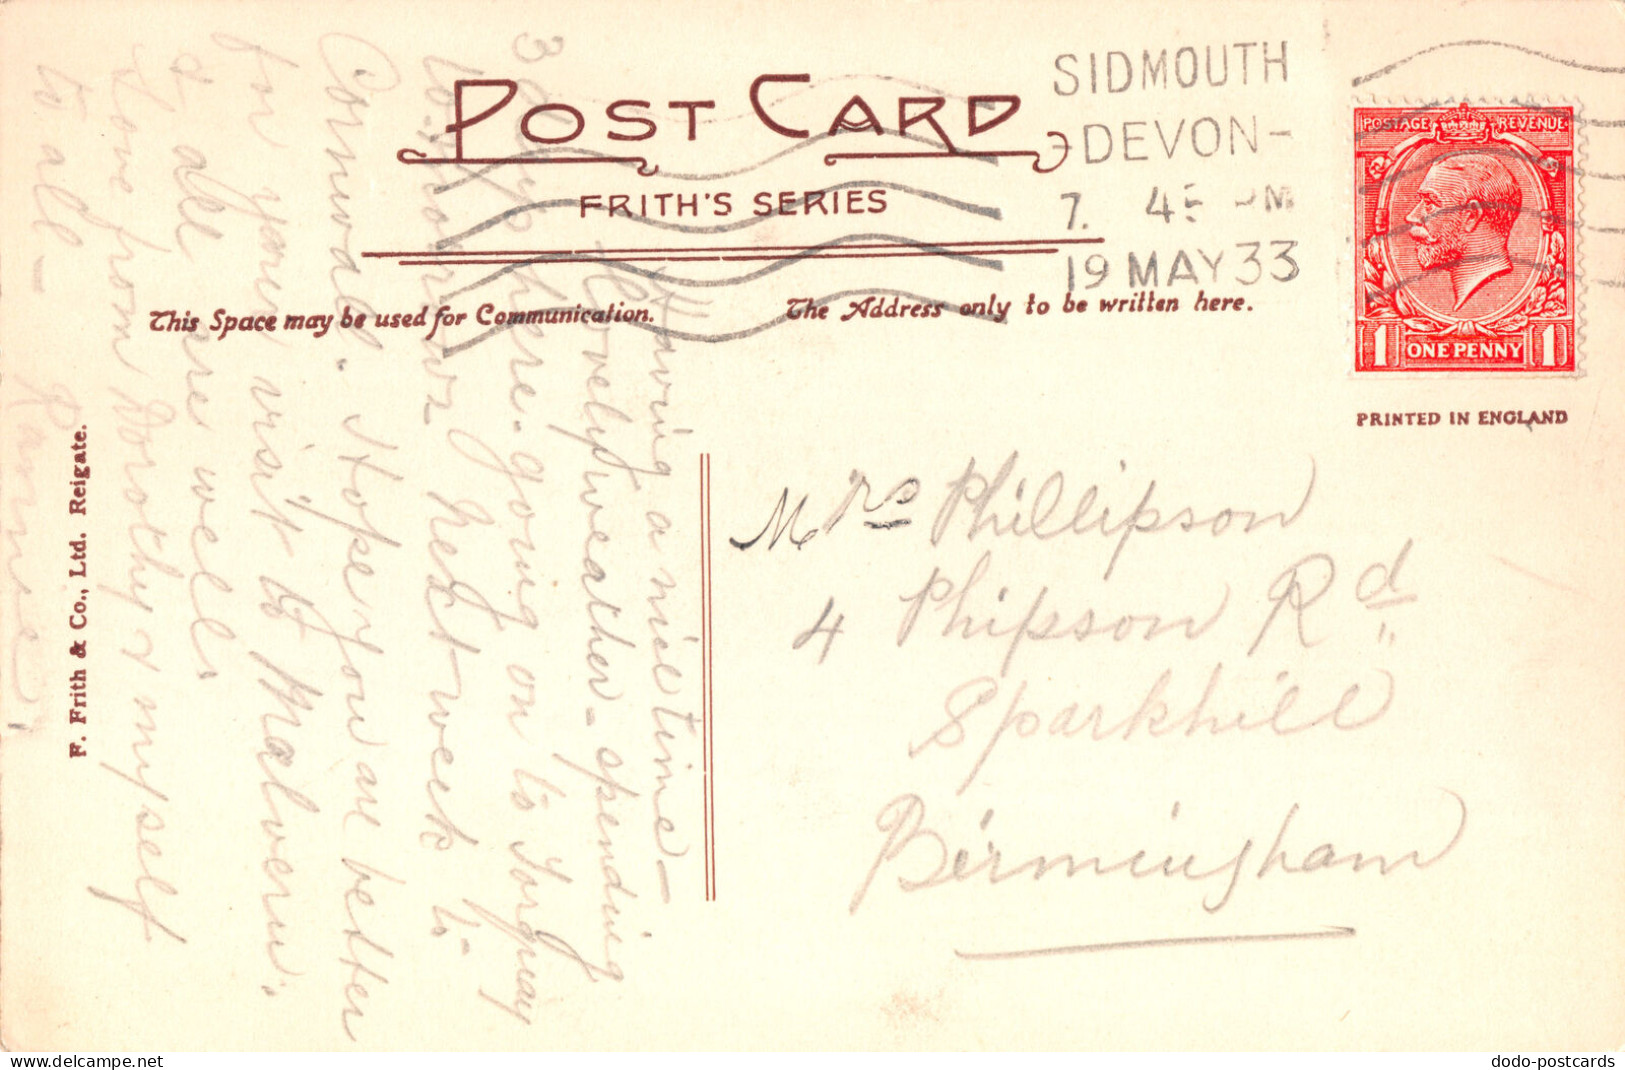 POST CARD
FRITH'S SERIES
This Space may be used for Communication.
The Address only to be written here.
SIDMOUTH
DEVON-
7. 45 PM
19 MAY 33
POSTAGE REVENUE
1 ONE PENNY 1
PRINTED IN ENGLAND
F. Frith & Co., Ltd. Reigate.
Having a nice time -
lovely weather - spending
3 days here - going on to Torquay
next week to
Cornwall. Hope you are better
for your visit to Malvern.
& all are well.
Love from Dorothy & myself
to all -
Mrs Phillipson
4 Phipson Rd
Sparkhill
Birmingham
dodo-postcards